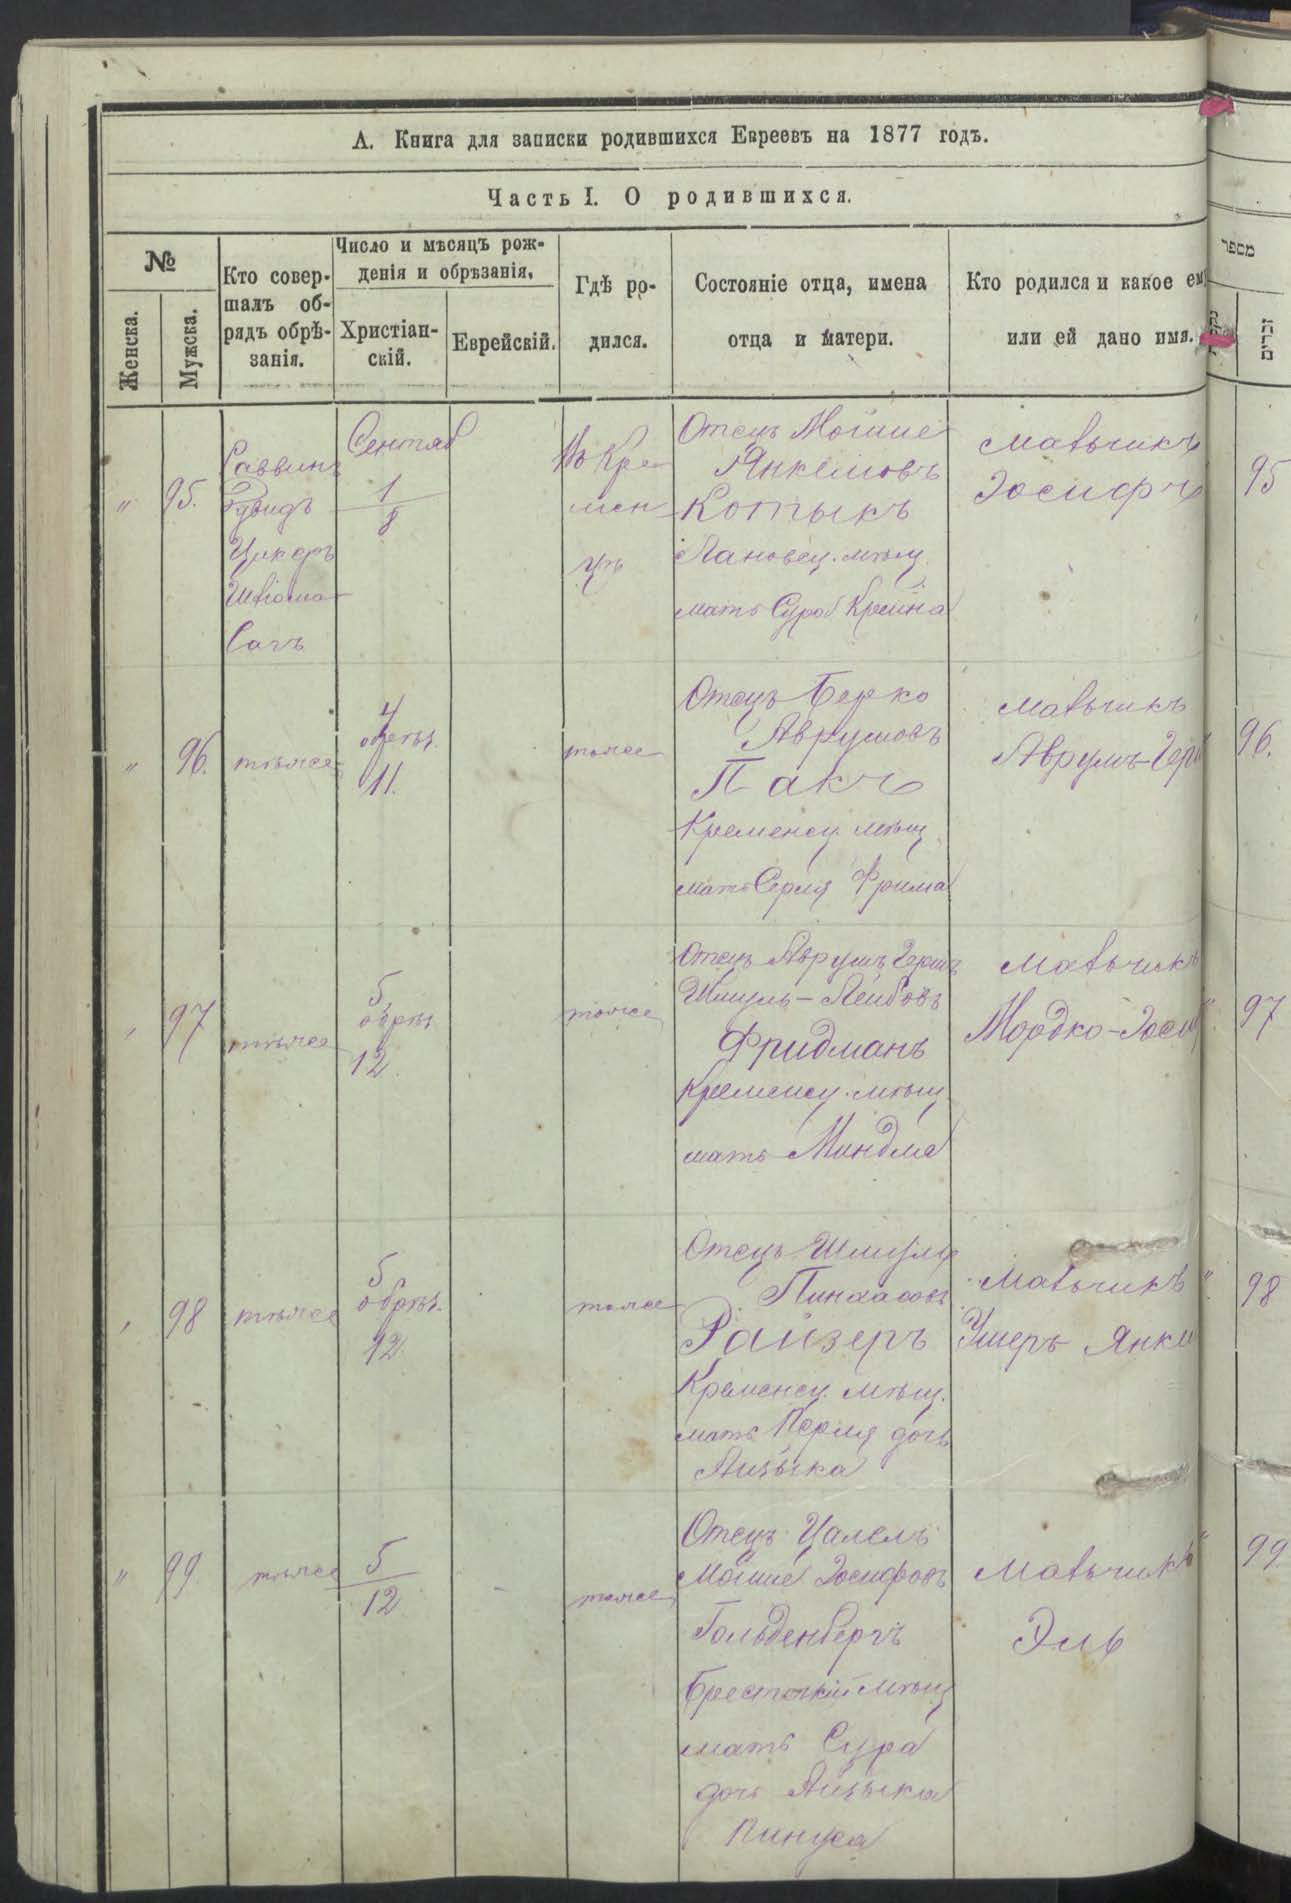 А. Книга для записки родившихся Евреевъ на 1877 годъ.
Часть I. О родившихся.
№
Женска.
Мужска.
Кто совер-
шалъ об-
рядъ обрѣ-
занія.
Число и мѣсяцъ рож-
денія и обрѣзанія.
Христіан-
скій.
Еврейскій.
Гдѣ ро-
дился.
Состояніе отца, имена
отца и матери.
Кто родился и какое ему
или ей дано имя.
מספר
זכרים
" 95.
Раввинъ
Сентяб
1
8
Въ Кре
мен
цѣ
Отецъ Мошие
Янкелювъ
Котыкъ
Лановец. мѣщ.
мать Сура Крейна
Мальчикъ
Іосифъ
95
" 96.
тѣже
4
обрѣз.
11.
тоже
Отецъ Берко
Аврумовъ
Пакъ
Кременец. мѣщ.
мать Серля Фрима
Мальчикъ
Аврумъ-Герш
96.
97
тѣже
5
обрѣз.
12.
тоже
Отецъ Аврумъ Гершъ
Шмуль-Лейбовъ
Фридманъ
Кременец. мѣщ
мать Миндля
Мальчикъ
Мордко-Іоси
97
98
тѣже
5
обрѣз.
12
тоже
Отецъ Шмуль
Пинхасовъ
Райзеръ
Кременец. мѣщ.
мать Перля дочь
Айзыка
Мальчикъ
Ушеръ Янке
98
" 99
тѣже
5
12
тоже
Отецъ Цалелъ
Мошие Іосифовъ
Гольденбергъ
Брестскій мѣщ
мать Сура
дочь Айзыка
Пинуса
Мальчикъ
Эль
99